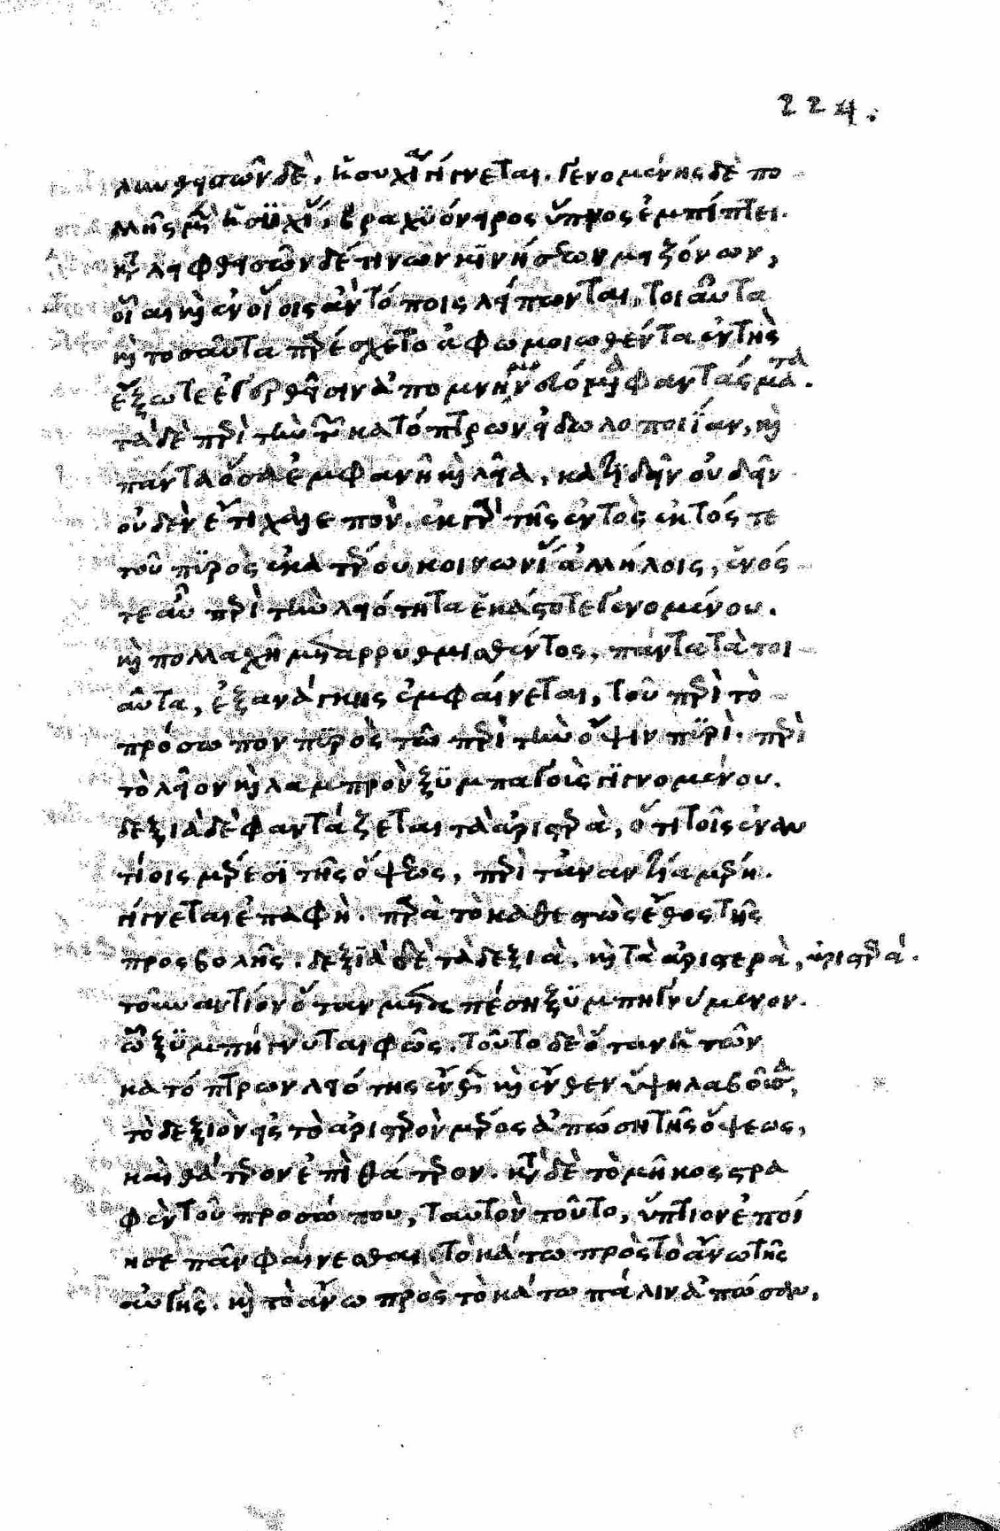 224.
λυνθεισῶν δὲ, ἡσυχία γίγνεται. γενομένης δὲ πο
λλῆς μὲν ἡσυχίας, βραχυόνειρος ὕπνος ἐμπίπτει.
καταλειφθεισῶν δέ τινων κινήσεων μειζόνων,
οἷαι καὶ ἐν οἵοις ἂν τόποις λείπωνται, τοιαῦτα
καὶ τοσαῦτα παρέσχετο ἀφωμοιωθέντα ἐντὸς
ἔξω τε ἐγερθεῖσιν ἀπομνημονευόμενα φαντάσματα.
τὰ δὲ περὶ τὴν τῶν κατόπτρων εἰδωλοποιΐαν, καὶ
πάντα ὅσα ἐμφανῆ καὶ λεῖα, κατιδεῖν οὐδὲν
οὐδὲν ἔτι χαλεπόν. ἐκ γὰρ τῆς ἐντὸς ἐκτός τε
τοῦ πυρὸς ἑκατέρου κοινωνίας ἀλλήλοις, ἑνός
τε αὖ περὶ τὴν λειότητα ἑκάστοτε γενομένου.
καὶ πολλαχῇ μεταρρυθμισθέντος, πάντα τὰ τοι
αῦτα, ἐξ ἀνάγκης ἐμφαίνεται, τοῦ περὶ τὸ
πρόσωπον πυρὸς τῷ περὶ τὴν ὄψιν πυρὶ. περὶ
τὸ λεῖον καὶ λαμπρὸν ξυμπαγοῦς γιγνομένου.
δεξιὰ δὲ φαντάζεται τὰ ἀριστερὰ, ὅτι τοῖς ἐναν
τίοις μέρεσι τῆς ὄψεως, περὶ τἀναντία μέρη.
γίγνεται ἐπαφὴ. παρὰ τὸ καθεστὼς ἔθος τῆς
προσβολῆς. δεξιὰ δὲ τὰ δεξιὰ, καὶ τὰ ἀριστερὰ, ἀριστερά.
τοὐναντίον ὅταν μεταπέσῃ ξυμπηγνύμενον.
ᾧ ξυμπήγνυται φῶς. τοῦτο δὲ ὅταν ἡ τῶν
κατόπτρων λειότης ἔνθεν καὶ ἔνθεν ὕψη λαβοῦσα,
τὸ δεξιὸν εἰς τὸ ἀριστερὸν μέρος ἀπώσῃ τῆς ὄψεως,
καὶ θάτερον ἐπὶ θάτερον. κατὰ δὲ τὸ μῆκος στρα
φὲν τοῦ προσώπου, ταυτὸν τοῦτο, ὕπτιον ἐποί
ησε πᾶν φαίνεσθαι. τὸ κάτω πρὸς τὸ ἄνω τῆς
αὐγῆς. καὶ τὸ ἄνω πρὸς τὸ κάτω πάλιν ἀπῶσαν.